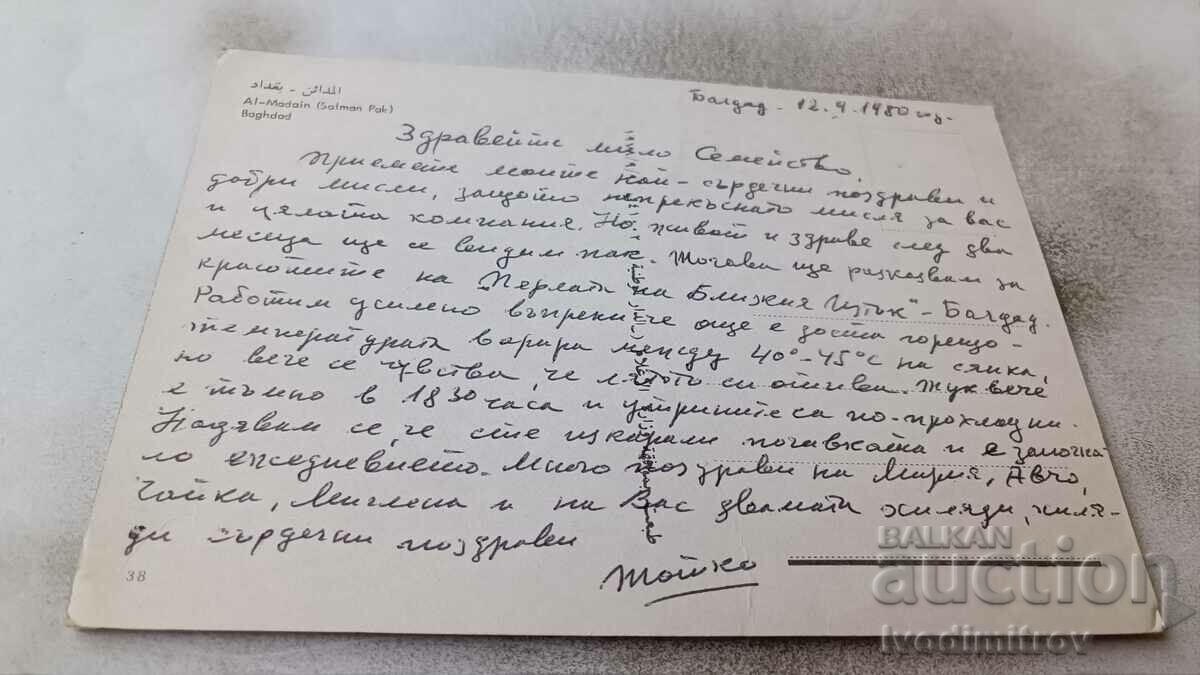 المدائن - بغداد
Al-Madain (Salman Pak)
Baghdad
Багдад. 12.9.1980 г.
Здравейте мило Семейство,
Приемете моите най-сърдечни поздрави и
добри мисли, защото непрекъснато мисля за вас
и цялата компания. Но живот и здраве след два
месеца ще се видим пак. Тогава ще разказвам за
красотите на "Перлата на Близкия Изток" - Багдад.
Работим усилено въпреки че още е доста горещо -
температурата варира между 40° - 45°C на сянка,
но вече се чувства, че лятото си отива. Тук вече
е тъмно в 18 30 часа и утрините са по-прохладни.
Надявам се, че сте изкарали почивката и е започна-
ло ежедневието. Много поздрави на Мария, Авчо,
Чайка, Миглена и на Вас двамата хиляди, хиля-
ди сърдечни поздрави
Тошко
38
BALKAN
auction
Ivodimitrov